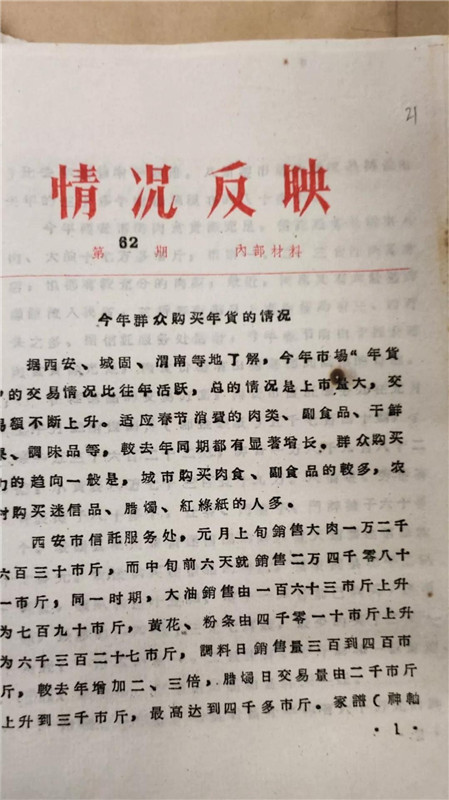 21
情况反映
第 62 期 內部材料
今年群众购买年貨的情况
据西安、城固、渭南等地了解，今年市場“年貨
的交易情况比往年活跃，总的情况是上市量大，交
易额不断上升。适应春节消費的肉类、副食品、干鮮
果、調味品等，較去年同期都有显著增长。群众购买
力的趋向一般是，城市购买肉食、副食品的較多，农
村购买迷信品、腊燭、紅綠紙的人多。
西安市信託服务处，元月上旬銷售大肉一万二千
六百三十市斤，而中旬前六天就銷售二万四千零八十
一市斤；同一时期，大油銷售由一百六十三市斤上升
为七百九十市斤，黃花、粉条由四千零一十市斤上升
为六千三百二十七市斤，調料日銷售量三百到四百市
斤，較去年增加二、三倍，腊燭日交易量由二千市斤
上升到三千市斤，最高达到四千多市斤。家譜（神軸
·1·